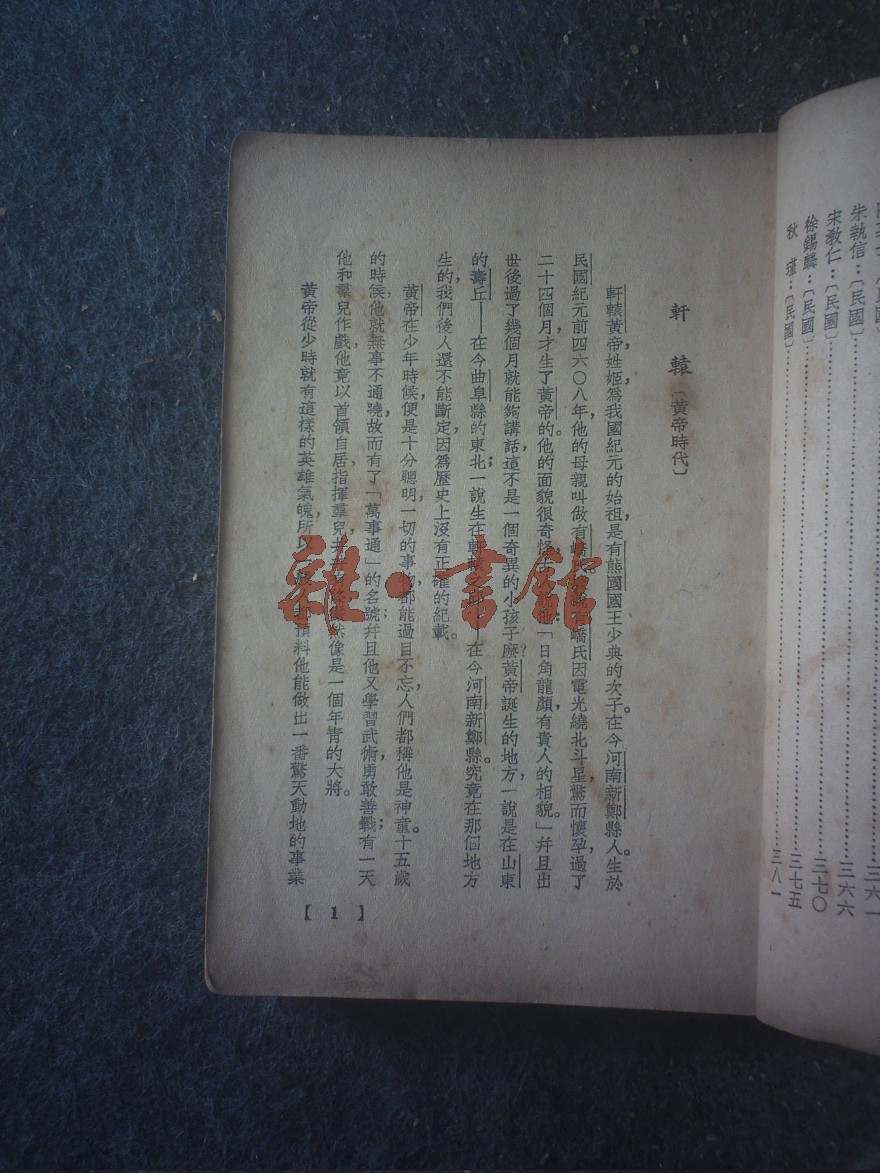 朱執信：〔民國〕……三六六
宋敎仁：〔民國〕……三七〇
徐錫麟：〔民國〕……三七五
秋瑾：〔民國〕……三八一
軒轅〔黃帝時代〕
軒轅黃帝姓姬，爲我國紀元的始祖，是有熊國國王少典的次子。在今河南新鄭縣人。生於
民國紀元前四六〇八年，他的母親叫做有嶠氏因電光繞北斗星，驚而懷孕，過了
二十四個月，才生了黃帝的。他的面貌很奇怪，他「日角龍顏，有貴人的相貌。」幷且出
世後過了幾個月就能夠講話，這不是一個奇異的小孩子麽？黃帝誕生的地方，一說是在山東
的壽丘——在今曲阜縣的東北；一說生在軒轅在今河南新鄭縣。究竟在那個地方
生的，我們後人還不能斷定，因爲歷史上沒有正確的紀載。
黃帝在少年時候，便是十分聰明，一切的事物，都能過目不忘，人們都稱他是神童。十五歲
的時候，他就無事不通曉，故而有了「萬事通」的名號；幷且他又學習武術，勇敢善戰；有一天
他和羣兒作戲，他竟以首領自居，指揮羣兒，然像是一個年靑的大將。
黃帝從少時就有這樣的英雄氣魄，所以預料他能做出一番驚天動地的事業
【1】
雜·書館